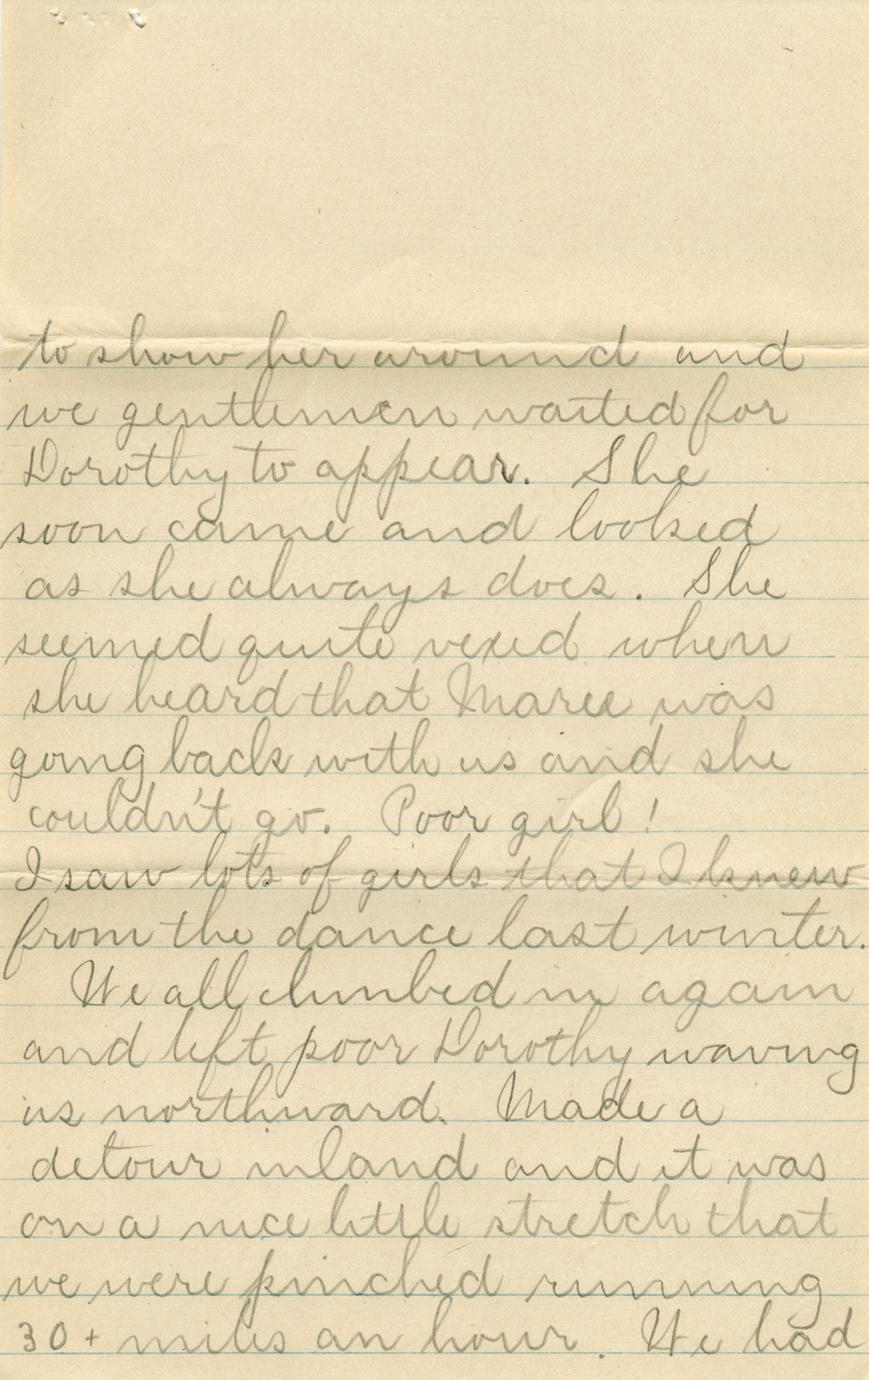 to show her around and
we gentlemen waited for
Dorothy to appear. She
soon came and looked
as she always does. She
seemed quite vexed when
she heard that Maree was
going back with us and she
couldn't go. Poor girl!
I saw lots of girls that I knew
from the dance last winter.
We all climbed in again
and left poor Dorothy waving
us northward. Made a
detour inland and it was
on a nice little stretch that
we were pinched running
30+ miles an hour. We had